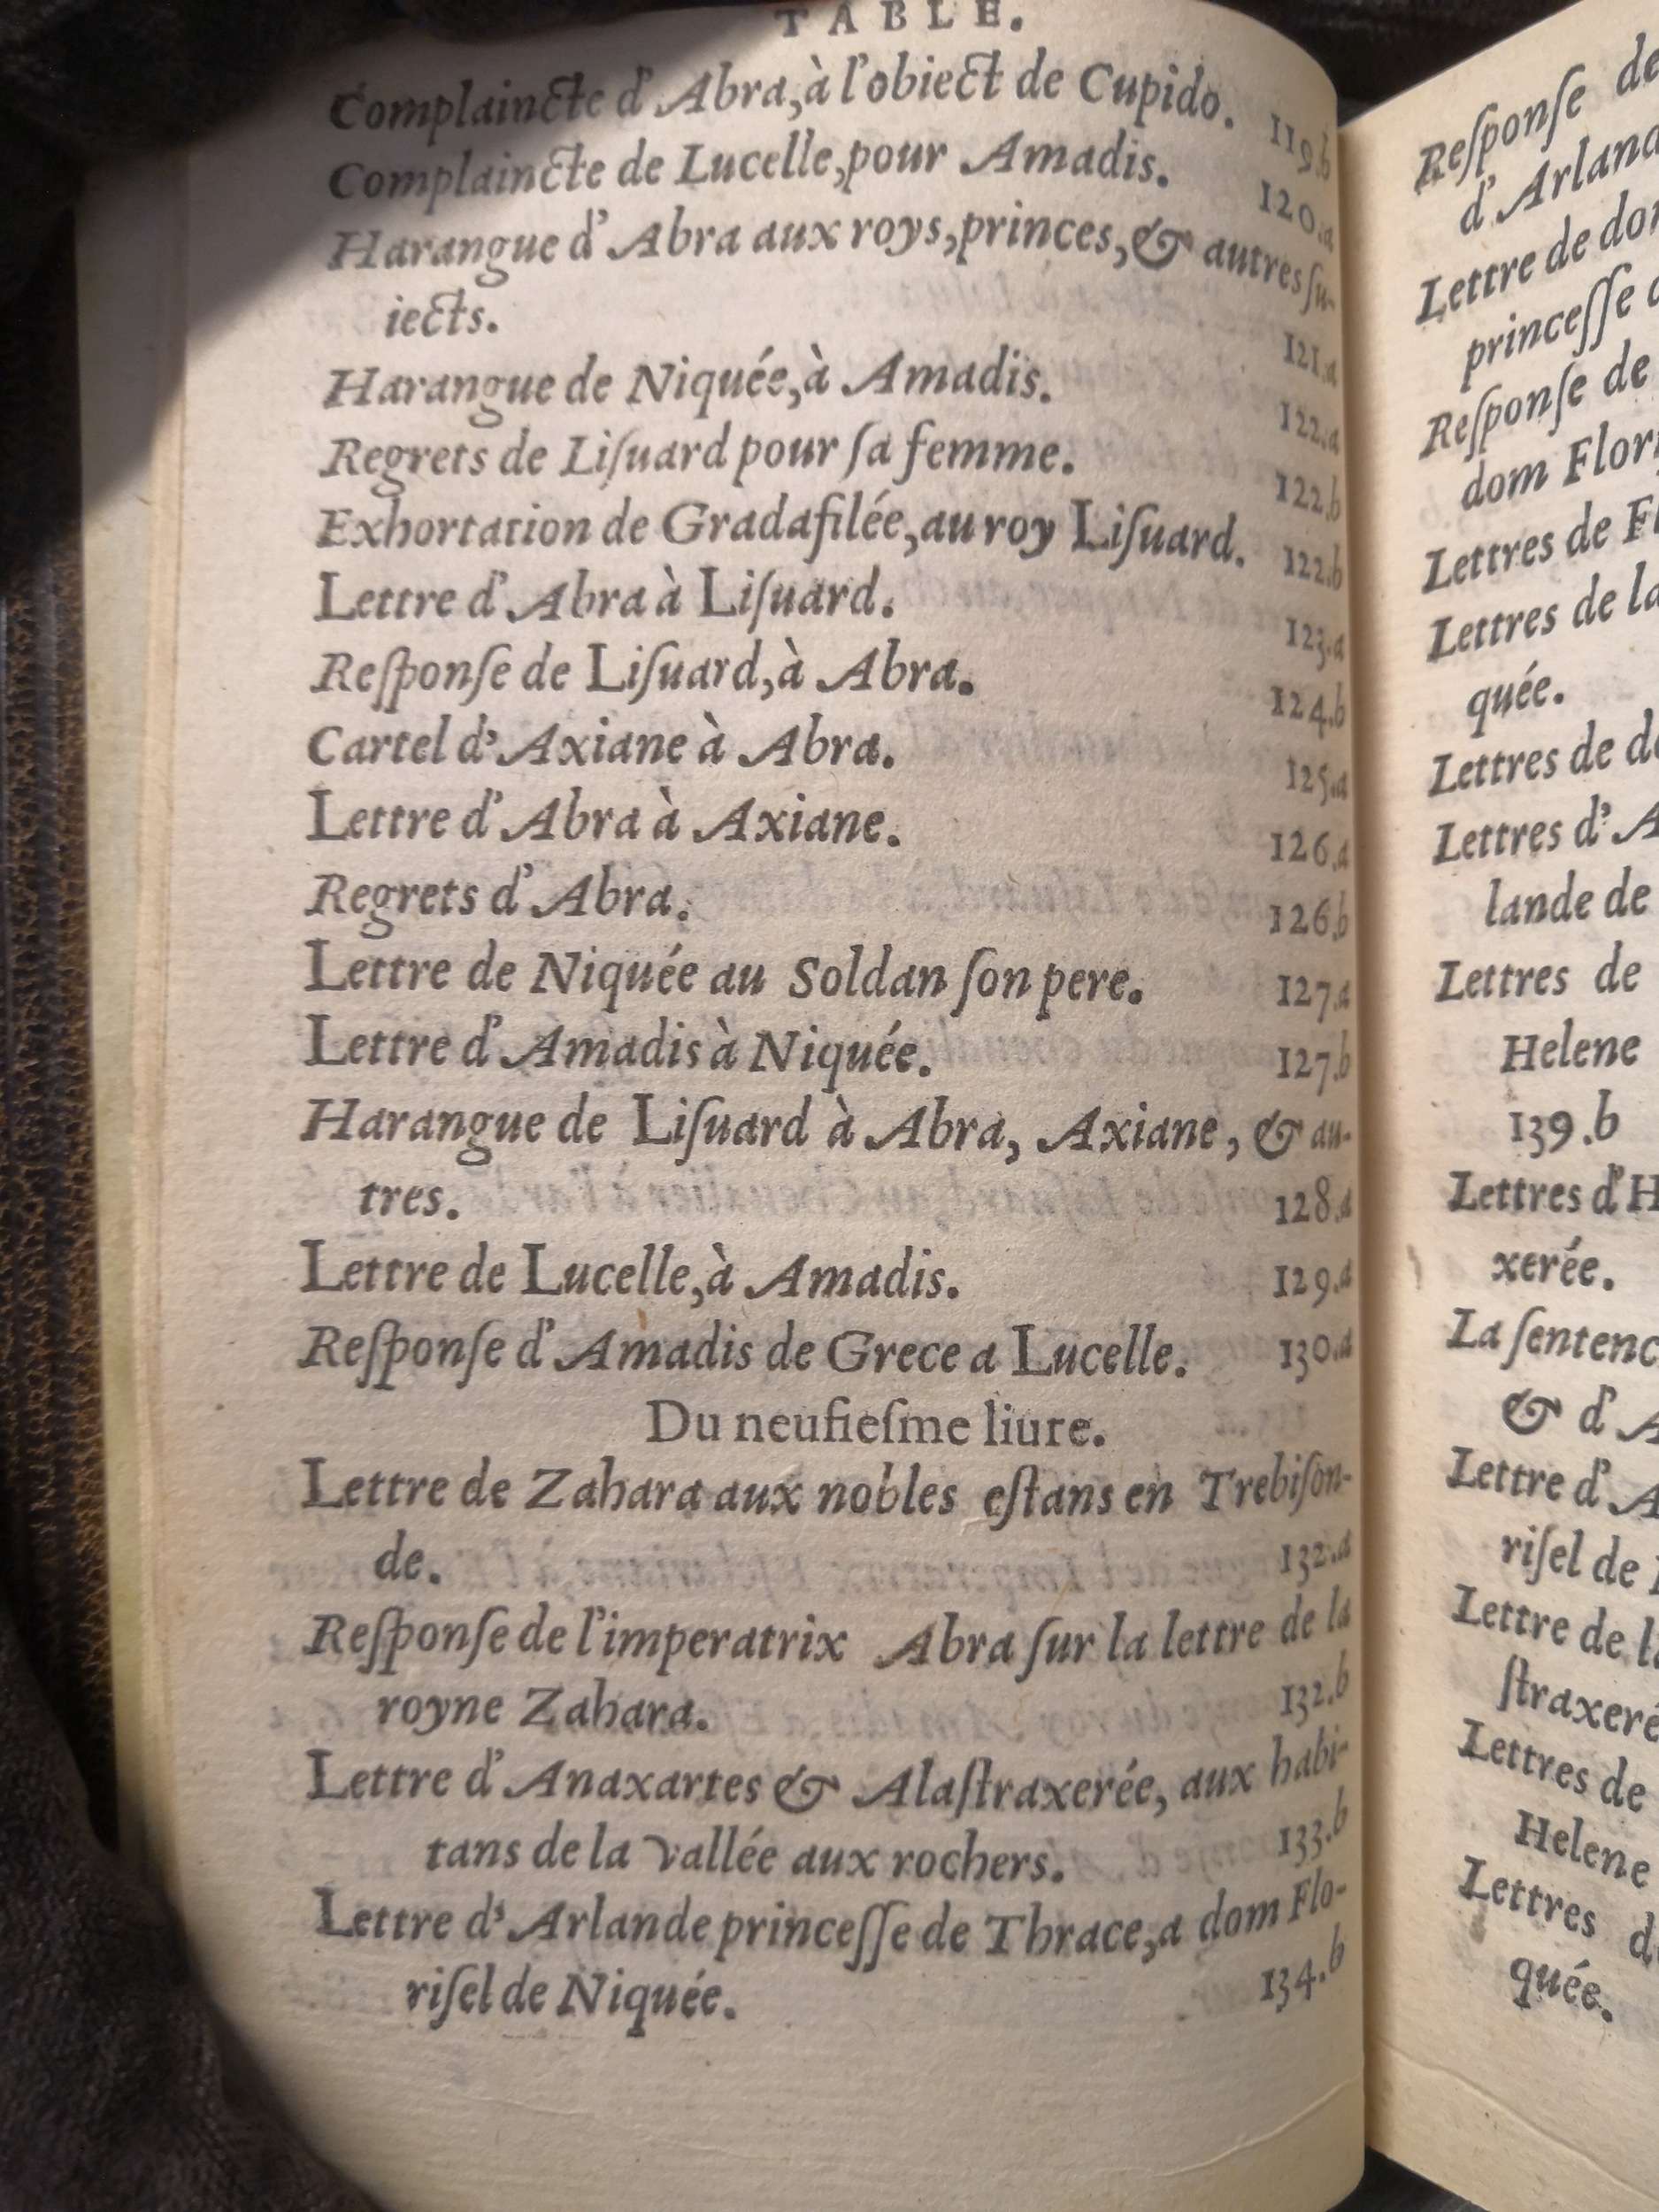 TABLE.
Complaincte d'Abra, à l'obiect de Cupido. 119.b
Complaincte de Lucelle, pour Amadis. 120.a
Harangue d'Abra aux roys, princes, & autres ſu-
iects. 121.a
Harangue de Niquée, à Amadis. 122.a
Regrets de Liſuard pour ſa femme. 122.b
Exhortation de Gradafilée, au roy Liſuard. 122.b
Lettre d'Abra à Liſuard. 123.a
Reſponſe de Liſuard, à Abra. 124.b
Cartel d'Axiane à Abra. 125.a
Lettre d'Abra à Axiane. 126.a
Regrets d'Abra. 126.b
Lettre de Niquée au Soldan ſon pere. 127.a
Lettre d'Amadis à Niquée. 127.b
Harangue de Liſuard à Abra, Axiane, & au-
tres. 128.a
Lettre de Lucelle, à Amadis. 129.a
Reſponſe d'Amadis de Grece a Lucelle. 130.a
Du neufieſme liure.
Lettre de Zahara aux nobles eſtans en Trebiſon-
de. 132.a
Reſponſe de l'imperatrix Abra ſur la lettre de la
royne Zahara. 132.b
Lettre d'Anaxartes & Alaſtraxerée, aux habi-
tans de la vallée aux rochers. 133.b
Lettre d'Arlande princeſſe de Thrace, a dom Flo-
riſel de Niquée. 134.b
Reſponſe
d'Arland
Lettre de
princeſſe
Reſponſe de
dom Flor
Lettres de
Lettres de
quée.
Lettres de
Lettres d'A
lande de
Lettres de
Helene
139.b
Lettres d'H
xerée.
La ſentenc
& d'A
Lettre d'A
riſel de
Lettre de
ſtraxeré
Lettres de
Helene
Lettres
quée.